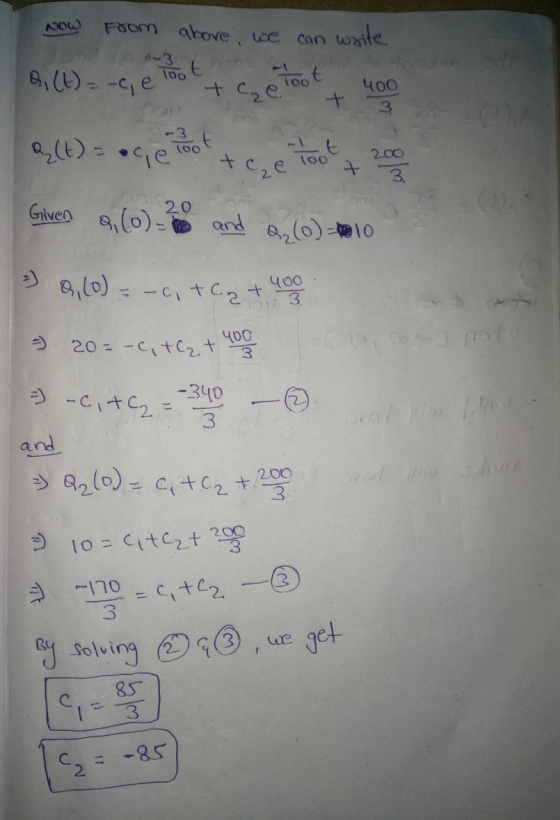 Now From above, we can write
Q₁(t) = -c₁e^(-3/100 t) + c₂e^(-1/100 t) + 400/3
Q₂(t) = c₁e^(-3/100 t) + c₂e^(-1/100 t) + 200/3
Given Q₁(0) = 20 and Q₂(0) = 10
⇒ Q₁(0) = -c₁ + c₂ + 400/3
⇒ 20 = -c₁ + c₂ + 400/3
⇒ -c₁ + c₂ = -340/3 — ②
and
⇒ Q₂(0) = c₁ + c₂ + 200/3
⇒ 10 = c₁ + c₂ + 200/3
⇒ -170/3 = c₁ + c₂ — ③
By solving ② & ③, we get
c₁ = 85/3
c₂ = -85